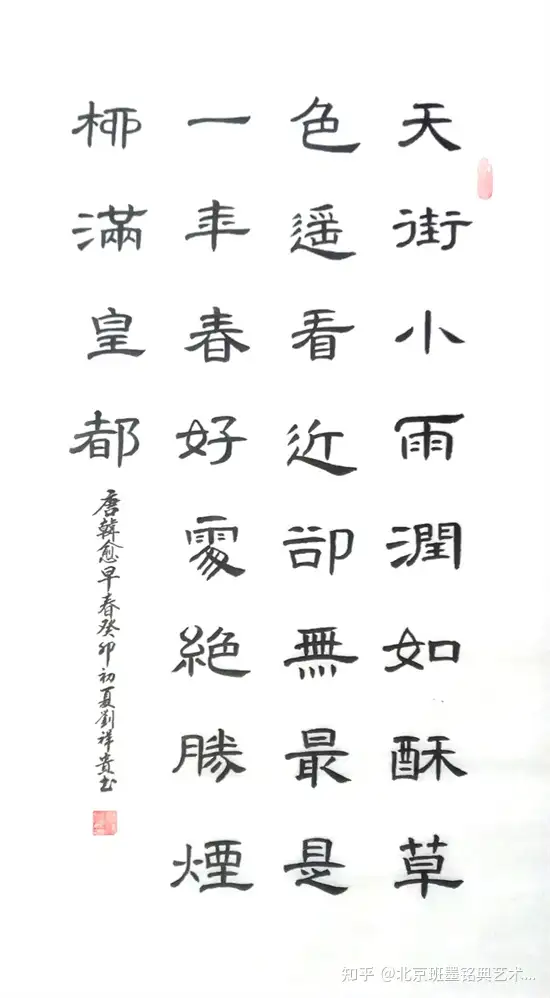 天街小雨潤如酥草
色遥看近卻無最是
一年春好處絕勝煙
柳滿皇都
唐韓愈早春癸卯初夏劉祥貴書
知乎 @北京班墨铭典艺术...